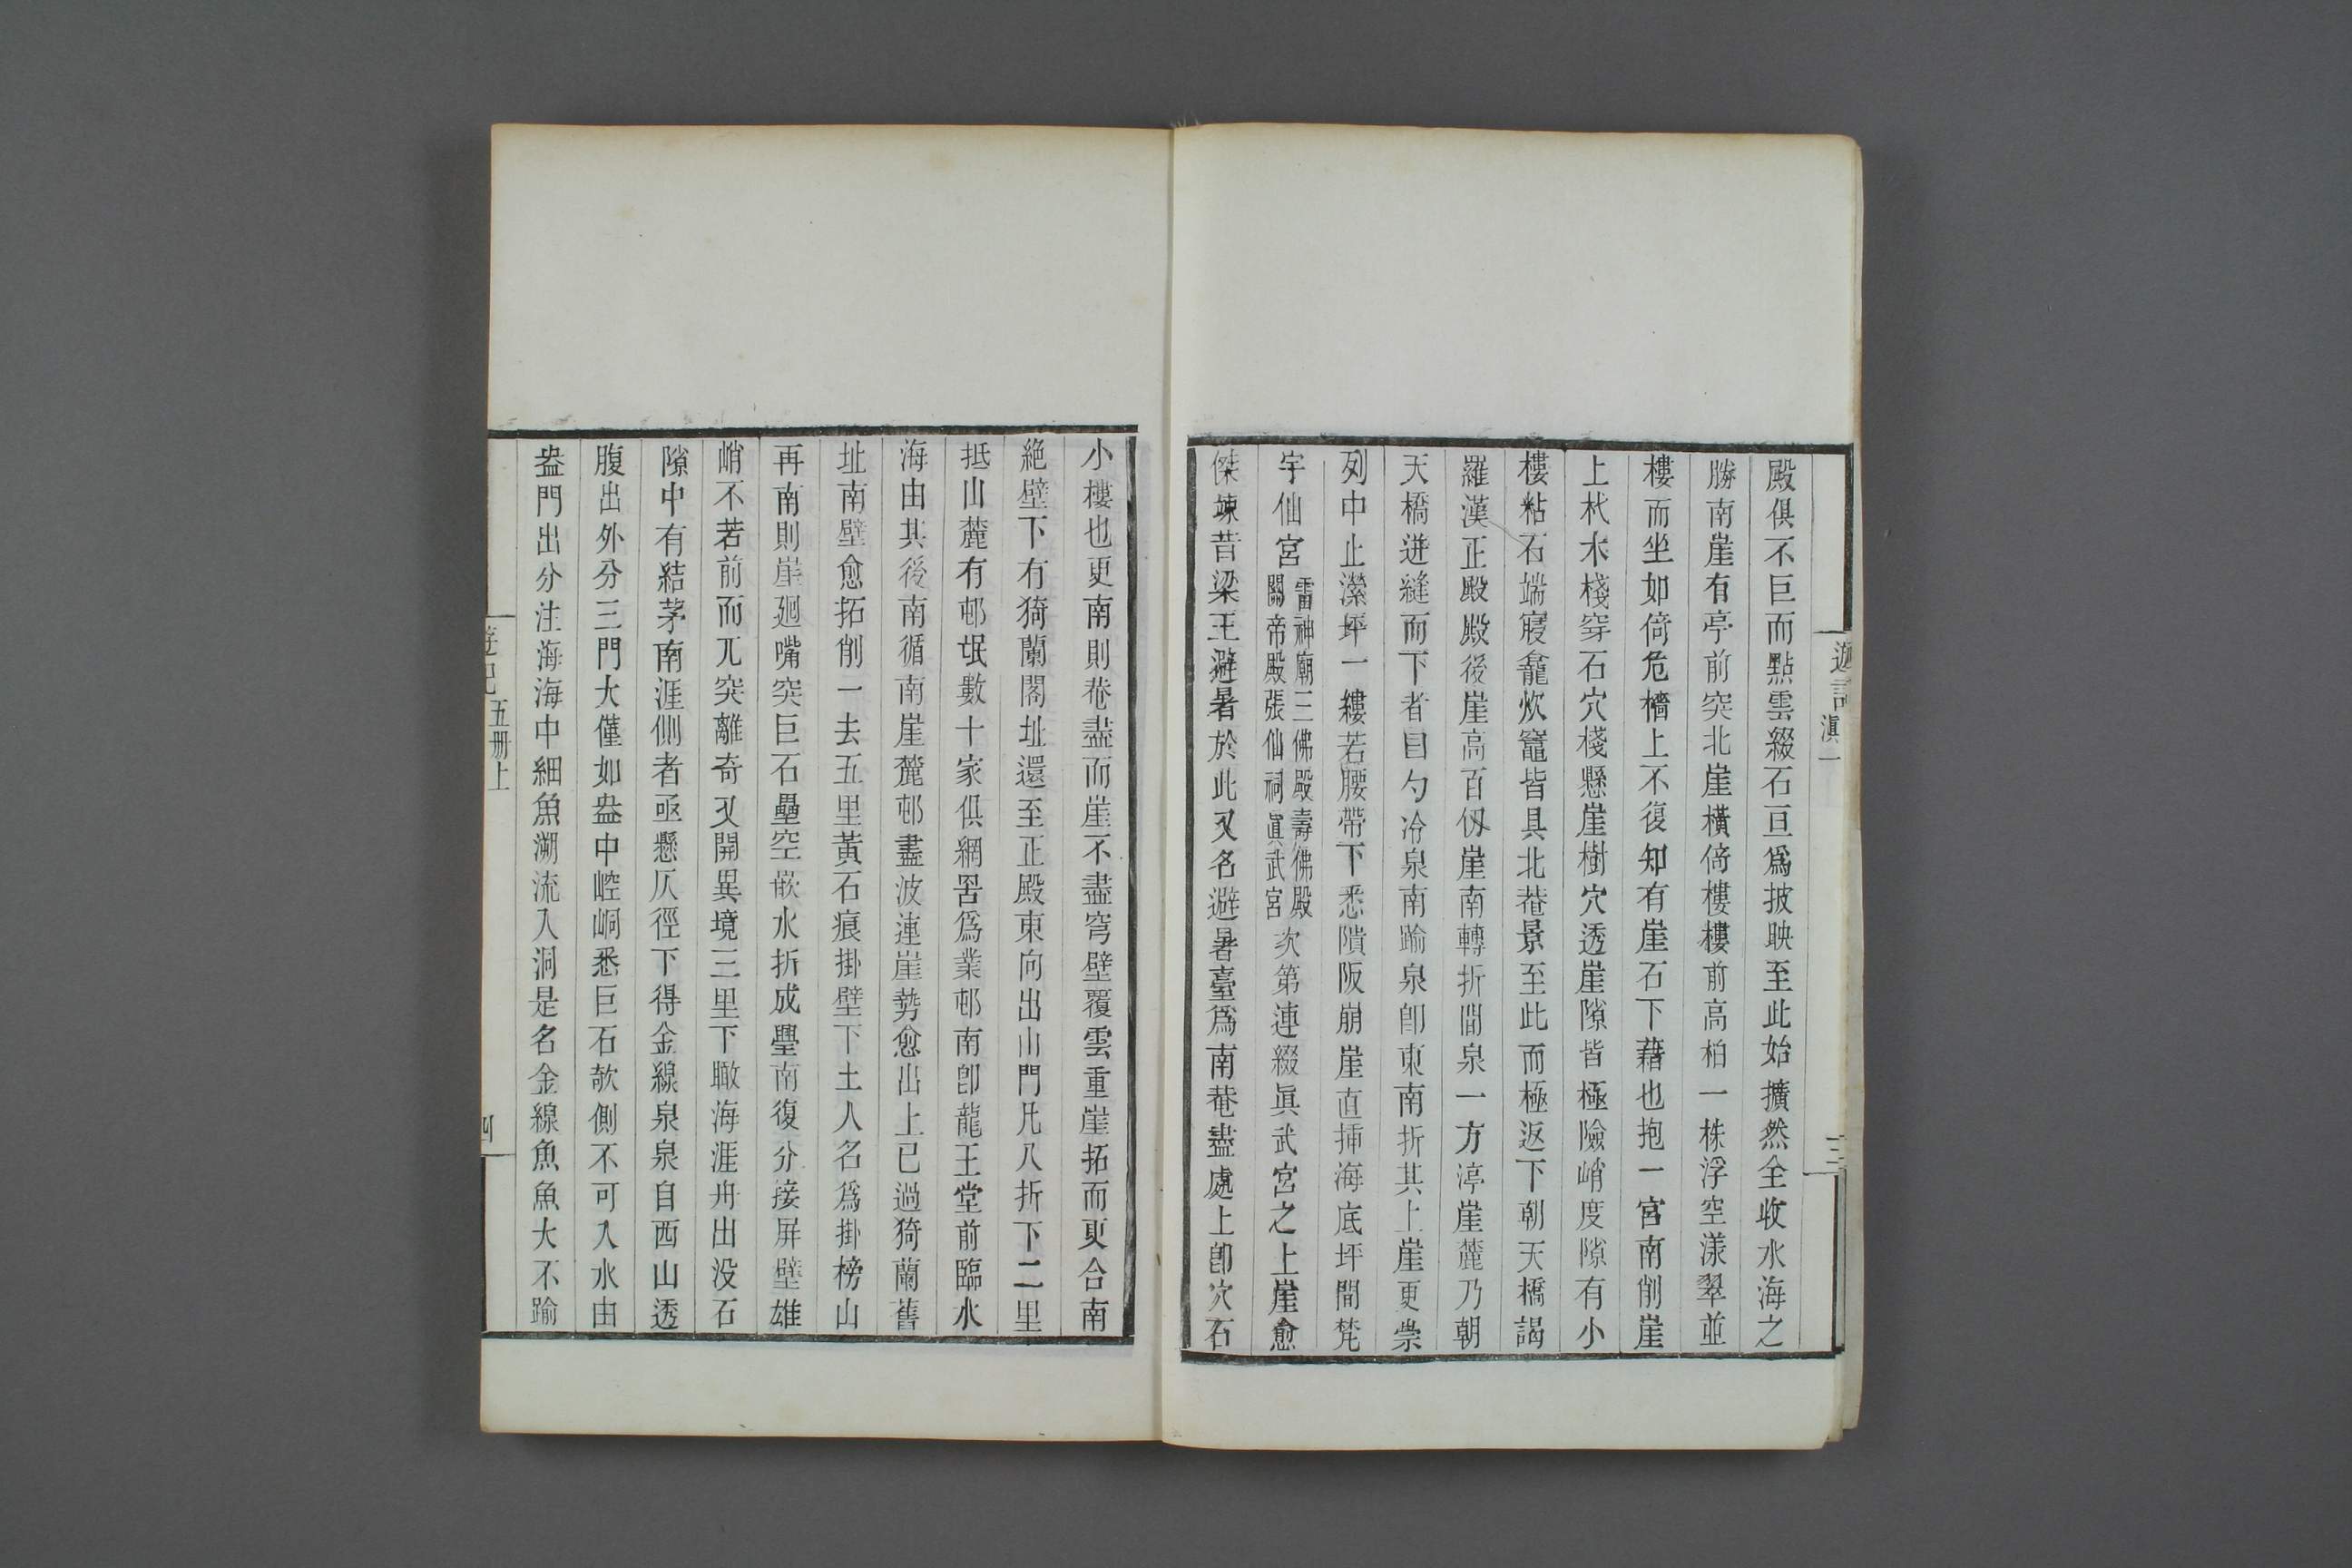 遊記
滇一
三
殿俱不巨而點雲綴石互爲披映至此始擴然全收水海之
勝南崖有亭前突北崖橫倚樓樓前高柏一株浮空漾翠並
樓而坐如倚危檣上不復知有崖石下藉也抱一宮南削崖
上杙木棧穿石穴棧懸崖樹穴透崖隙皆極險峭度隙有小
樓粘石端寢龕炊竈皆具北菴景至此而極返下朝天橋謁
羅漢正殿殿後崖高百仞崖南轉折間泉一方渟崖麓乃朝
天橋迸縫而下者曰勺冷泉南踰泉卽東南折其上崖更崇
列中止瀠坪一縷若腰帶下悉隤阪崩崖直揷海底坪間梵
宇仙宮
雷神廟三佛殿壽佛殿
關帝殿張仙祠眞武宮
次第連綴眞武宮之上崖愈
傑竦昔梁王避暑於此又名避暑臺爲南菴盡處上卽穴石
小樓也更南則菴盡而崖不盡穹壁覆雲重崖拓而更合南
絕壁下有猗蘭閣址還至正殿東向出山門凡八折下二里
抵山麓有邨氓數十家俱網罟爲業邨南卽龍王堂前臨水
海由其後南循南崖麓邨盡波連崖勢愈出上已過猗蘭舊
址南壁愈拓削一去五里黃石痕掛壁下土人名爲掛榜山
再南則崖廻嘴突巨石壘空嵌水折成壘南復分接屏壁雄
峭不若前而兀突離奇又開異境三里下瞰海涯舟出沒石
隙中有結茅南涯側者亟懸仄徑下得金線泉泉自西山透
腹出外分三門大僅如盎中崆峒悉巨石欹側不可入水由
盎門出分注海海中細魚溯流入洞是名金線魚魚大不踰
遊記
五册上
四